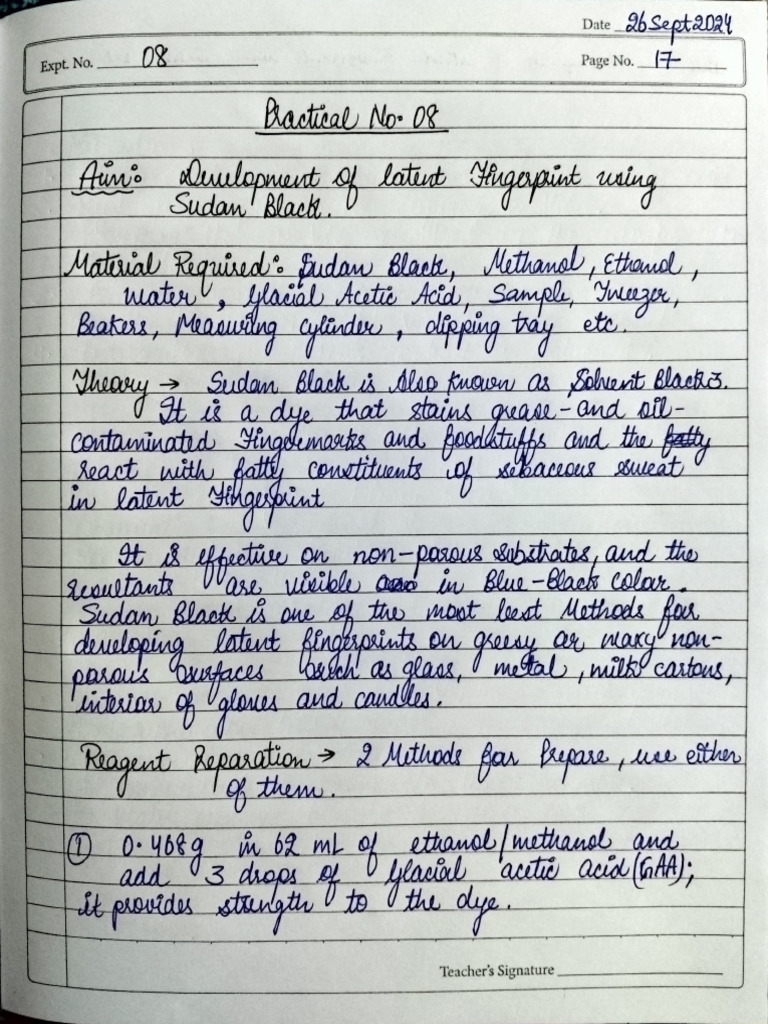 Date 26 Sept 2024
Expt. No. 08
Page No. 17
Practical No. 08
Aim: Development of latent Fingerprint using
Sudan Black.
Material Required: Sudan Black, Methanol, Ethanol,
water, Glacial Acetic Acid, Sample, Tweezer,
Beakers, Measuring cylinder, dipping tray etc.
Theory → Sudan Black is Also known as Solvent Black 3.
It is a dye that stains grease-and oil-
contaminated Fingermarks and foodstuffs and the fatty
react with fatty constituents of sebaceous sweat
in latent Fingerprint
It is effective on non-porous substrates, and the
resultants are visible in Blue-Black color.
Sudan Black is one of the most best Methods for
developing latent fingerprints on greesy or waxy non-
porous surfaces such as glass, metal, milk cartons,
interior of gloves and candles.
Reagent Reparation → 2 Methods for Prepare, use either
of them.
① 0.468g in 62 mL of ethanol/methanol and
add 3 drops of Glacial acetic acid (GAA);
it provides strength to the dye.
Teacher's Signature